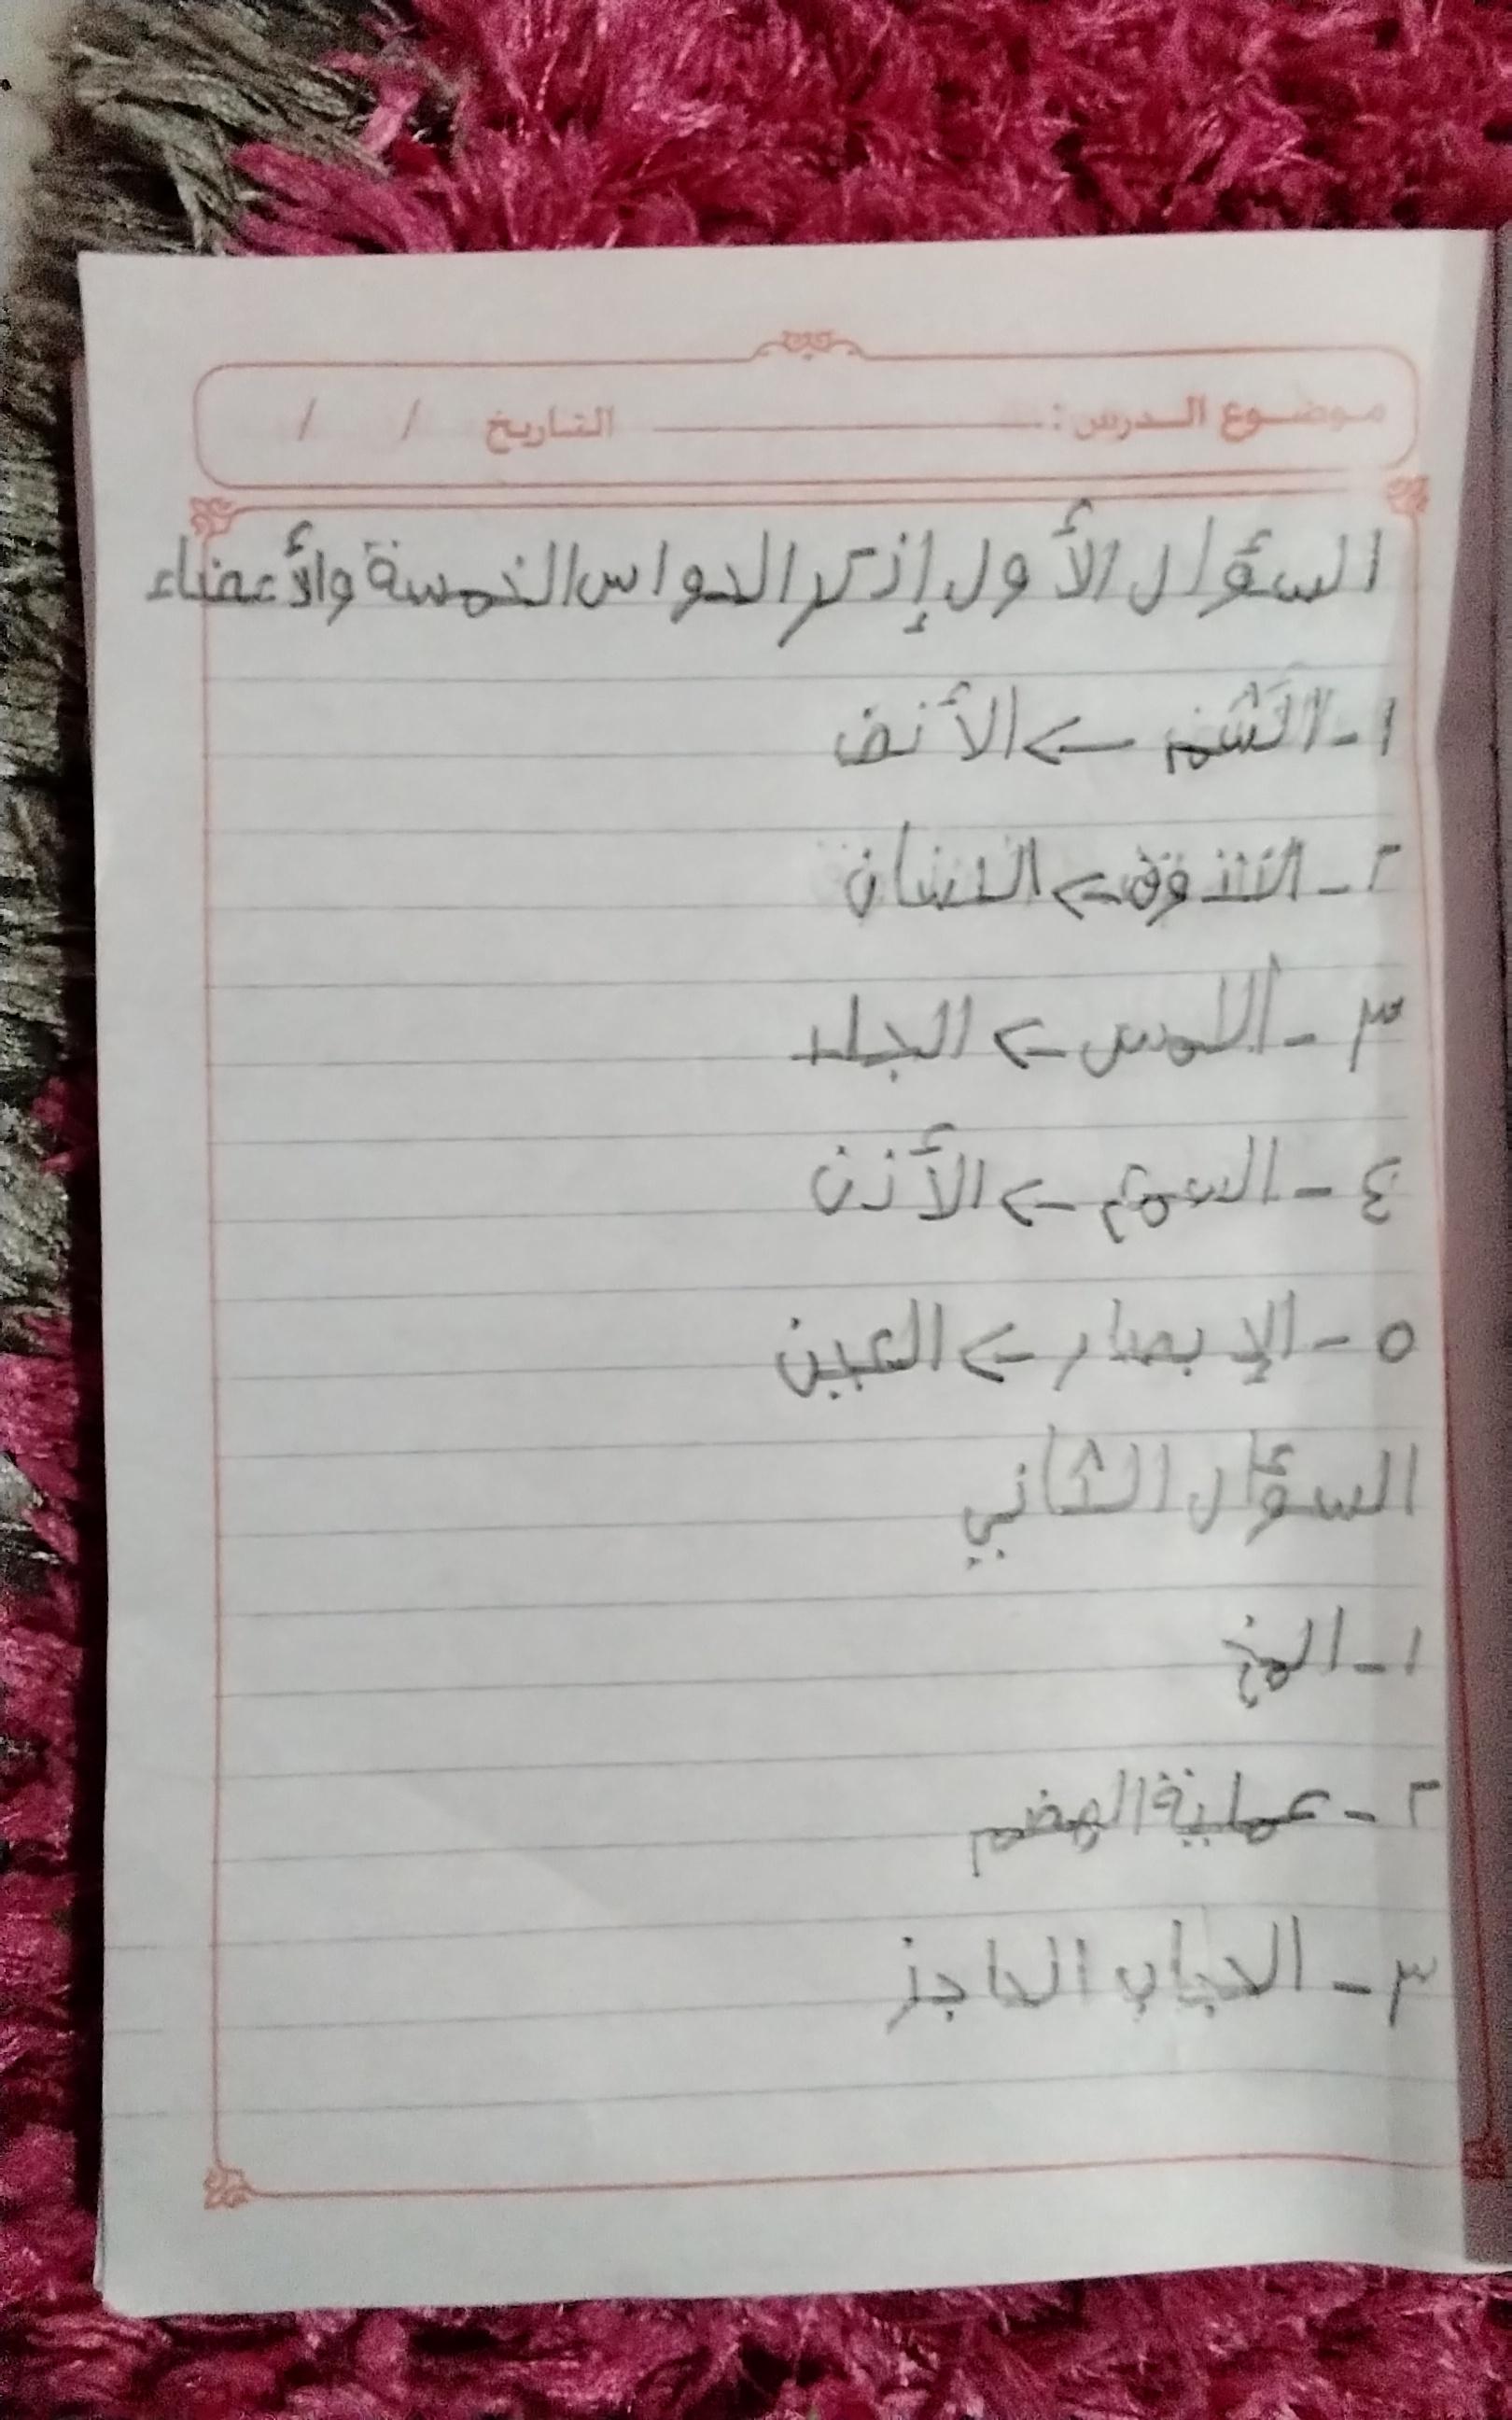 موضوع الدرس : التاريخ / /
السؤال الأول إذكر الحواس الخمسة والأعضاء
١ - الشم ← الأنف
٢ - التذوق ← اللسان
٣ - اللمس ← الجلد
٤ - السمع ← الأذن
٥ - الإبصار ← العين
السؤال الثاني
١ - المخ
٢ - عملية الهضم
٣ - الحجاب الحاجز